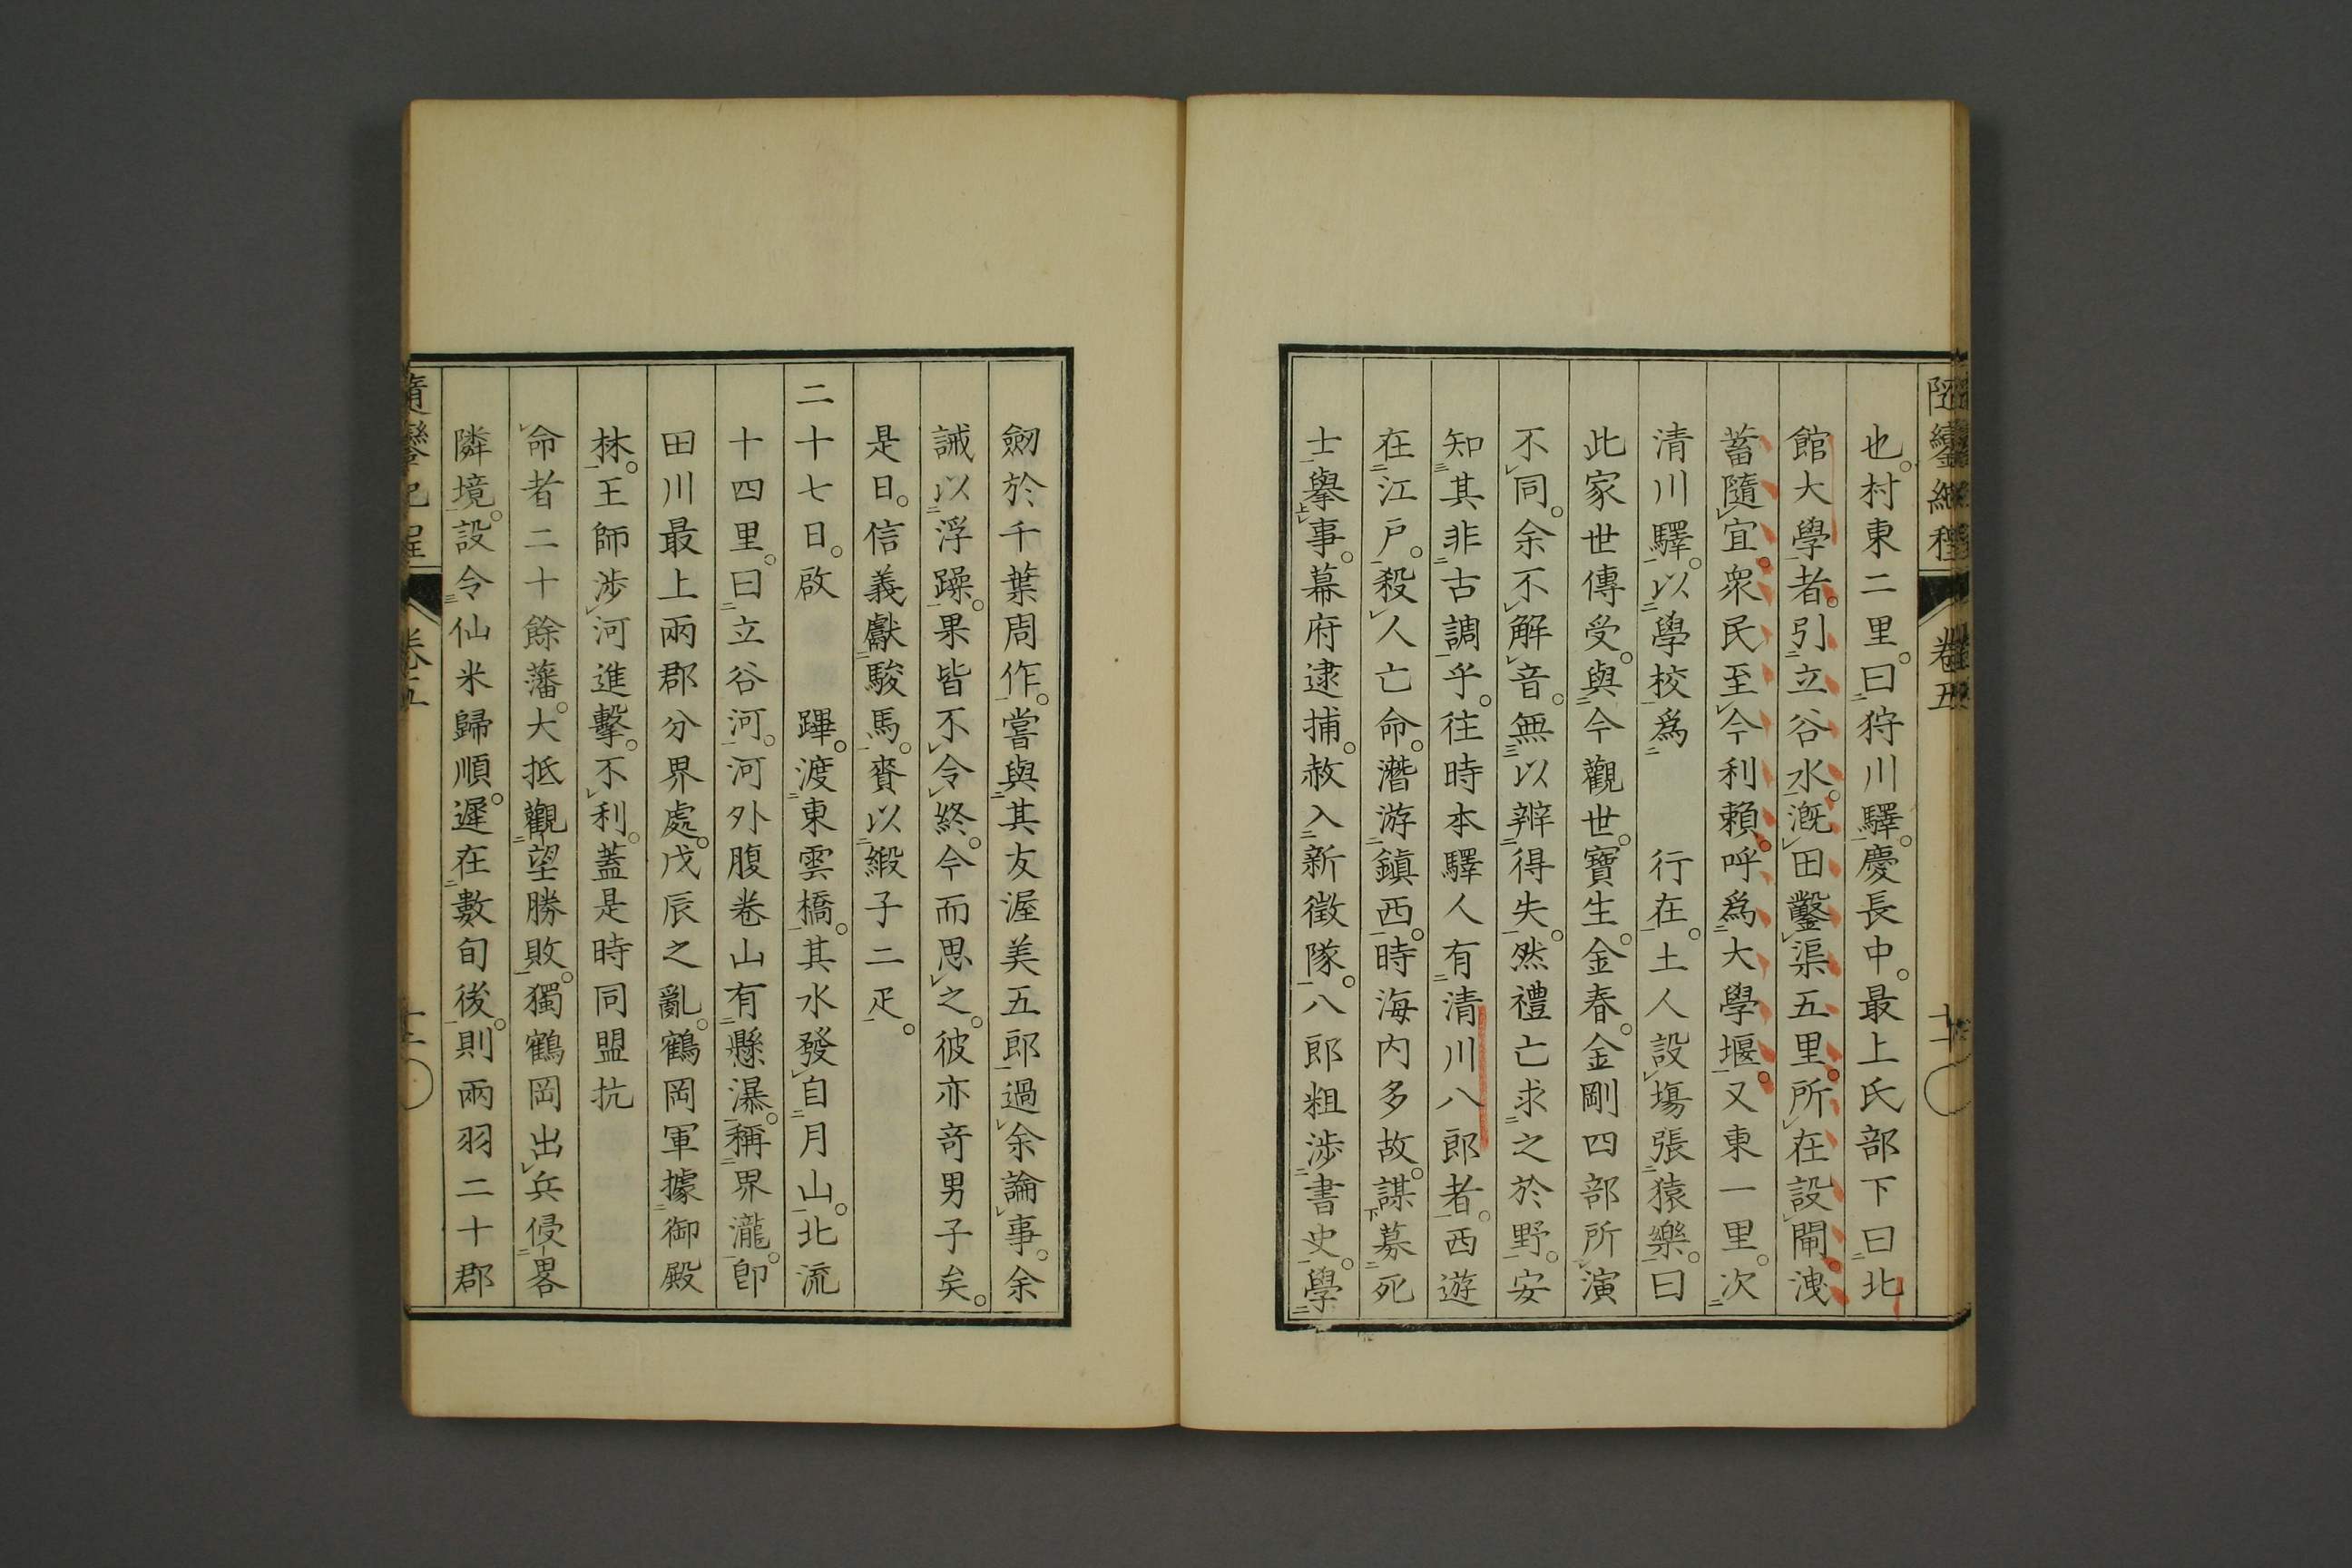 也。村東二里。曰狩川驛。慶長中。最上氏部下曰北
館大學者。引立谷水。漑田鑿渠五里。所在設閘。洩
蓄隨宜。衆民至今利賴。呼爲大學堰。又東一里。次
清川驛。以學校爲行在。土人設場張猿樂。曰
此家世傳受。與今觀世。寶生。金春。金剛四部所演
不同。余不解音。無以辨得失。然禮亡求之於野。安
知其非古調乎。往時本驛人有清川八郎者。西遊
在江戶。殺人亡命。潛游鎮西。時海内多故。謀募死
士擧事。幕府逮捕。赦入新徴隊。八郎粗渉書史。學
劒於千葉周作。嘗與其友渥美五郎過余論事。余
誡以浮躁。果皆不令終。今而思之。彼亦竒男子矣。
是日。信義獻駿馬。賚以緞子二疋。
二十七日。啟蹕。渡東雲橋。其水發自月山。北流
十四里。曰立谷河。河外腹卷山有懸瀑。稱界瀧。卽
田川最上兩郡分界處。戊辰之亂。鶴岡軍據御殿
林。王師渉河進擊。不利。蓋是時同盟抗
命者二十餘藩。大抵觀望勝敗。獨鶴岡出兵侵畧
隣境。設令仙米歸順。遲在數旬後。則兩羽二十郡
卷五